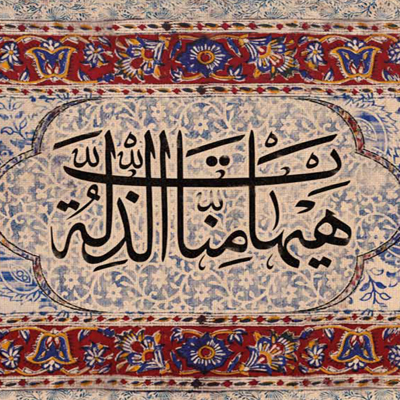 هیهات منا الذلة